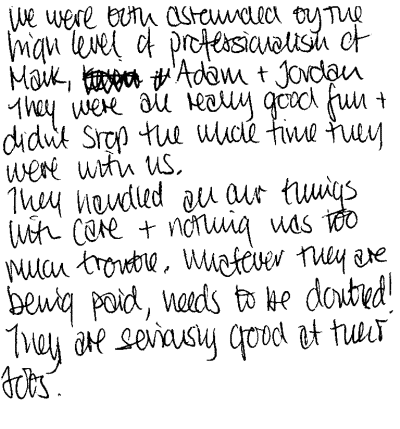 We were both astounded by the
high level of professionalism of
Mark, + Adam + Jordan
They were all really good fun +
didn't stop the whole time they
were with us.
They handled all our things
with care + nothing was too
much trouble. Whatever they are
being paid, needs to be doubled!
They are seriously good at their
jobs.